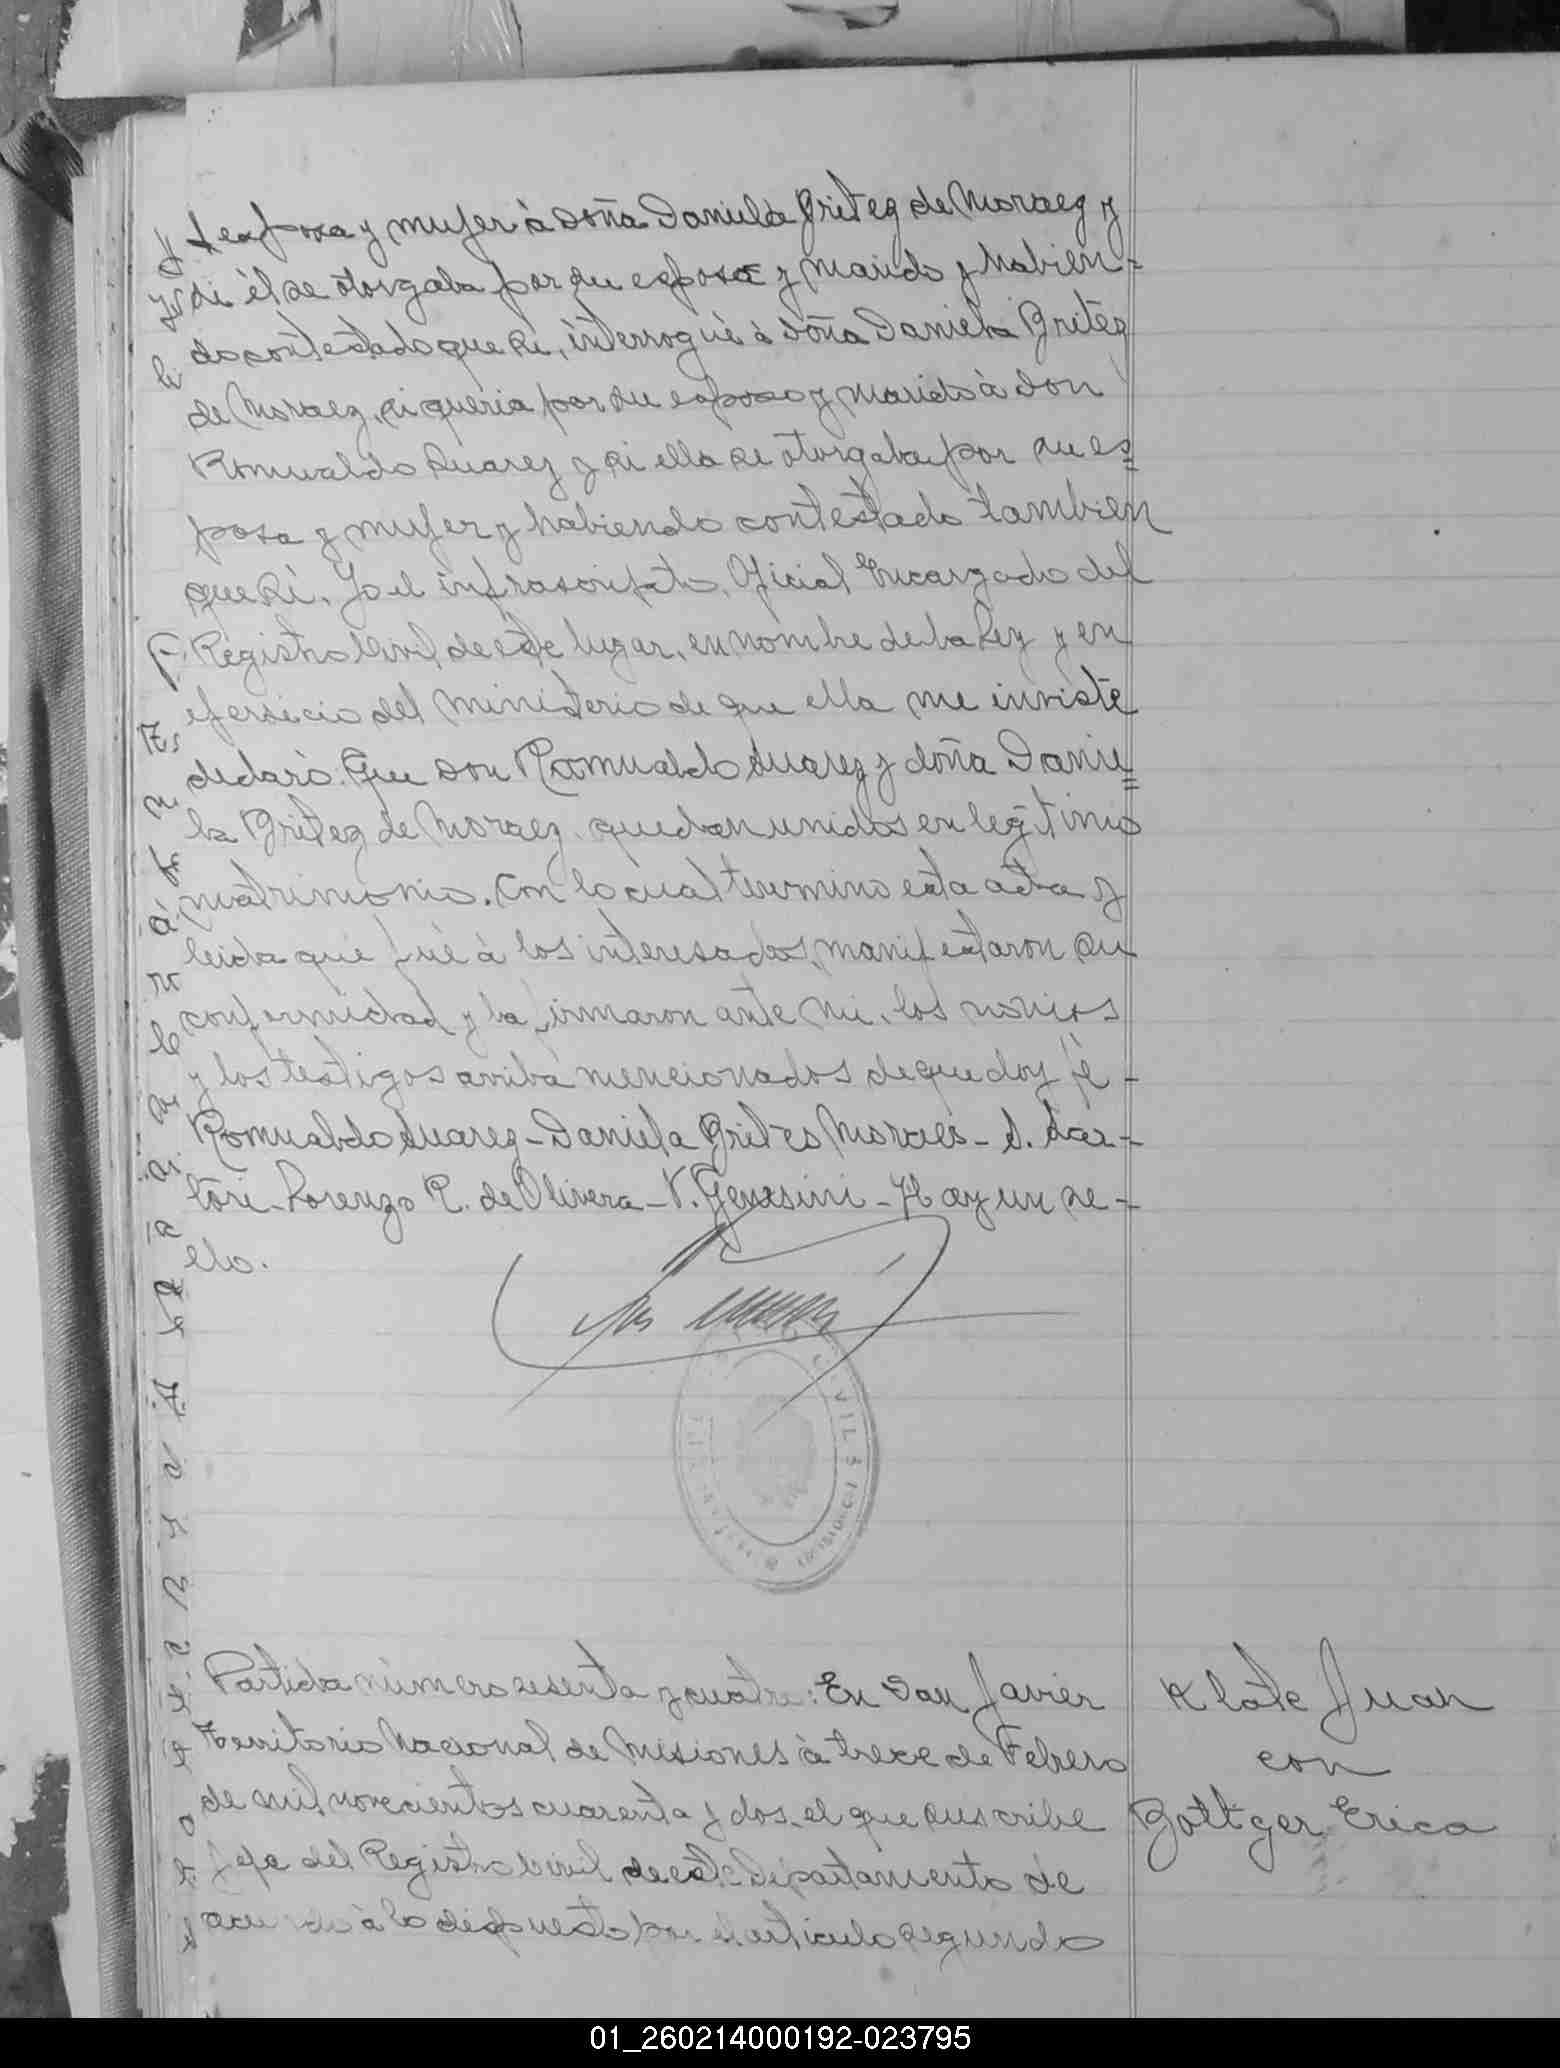 esposa y mujer à doña Daniela Britez de Moraez y
si él se otorgaba por su esposo y marido y habien=
do contestado que si, interrogué à doña Daniela Britez
de Moraez, si queria por su esposo y marido à don
Romualdo Suarez y si ella se otorgaba por su es=
posa y mujer y habiendo contestado tambien
que si. Yo el infrascripto, Oficial Encargado del
Registro Civil de este lugar, en nombre de la Ley y en
ejersicio del ministerio de que ella me inviste
declaró. Que don Romualdo Suarez y doña Danie=
la Britez de Moraez quedan unidos en legitimo
matrimonio. Con lo cual termino esta acta y
leida que fué à los interesados, manifestaron su
conformidad y la firmaron ante mi, los novios
y los testigos arriba mencionados de que doy fè -
Romualdo Suarez - Daniela Brites Moraes - S. Sar-
tori - Lorenzo R. de Olivera - V. Genesini - Hay un se-
llo.
Partida número sesenta y cuatro: En San Javier
Territorio Nacional de Misiones à trece de Febrero
de mil novecientos cuarenta y dos, el que suscribe
Jefe del Registro Civil de este Departamento de
acuerdo à lo dispuesto por el articulo segundo
Klate Juan
con
Bottger Erica
01_260214000192-023795